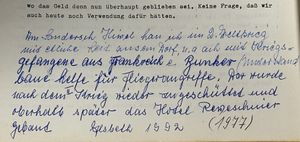 wo das Geld denn nun überhaupt geblieben sei. Keine Frage, daß wir
auch heute noch Verwendung dafür hätten.
Im Hinsel han ich im 2. Weltkrieg
mit etliche vom Dorf, u.a. ach mit Kriegs-
gefangene aus Frankreich e. Bunker
baue helfe für Fliegerangriffe. Der wurde
nach dem Krieg wieder angeschüttet und
oberhalb später das Hotel
gebaut 1992 (1977)